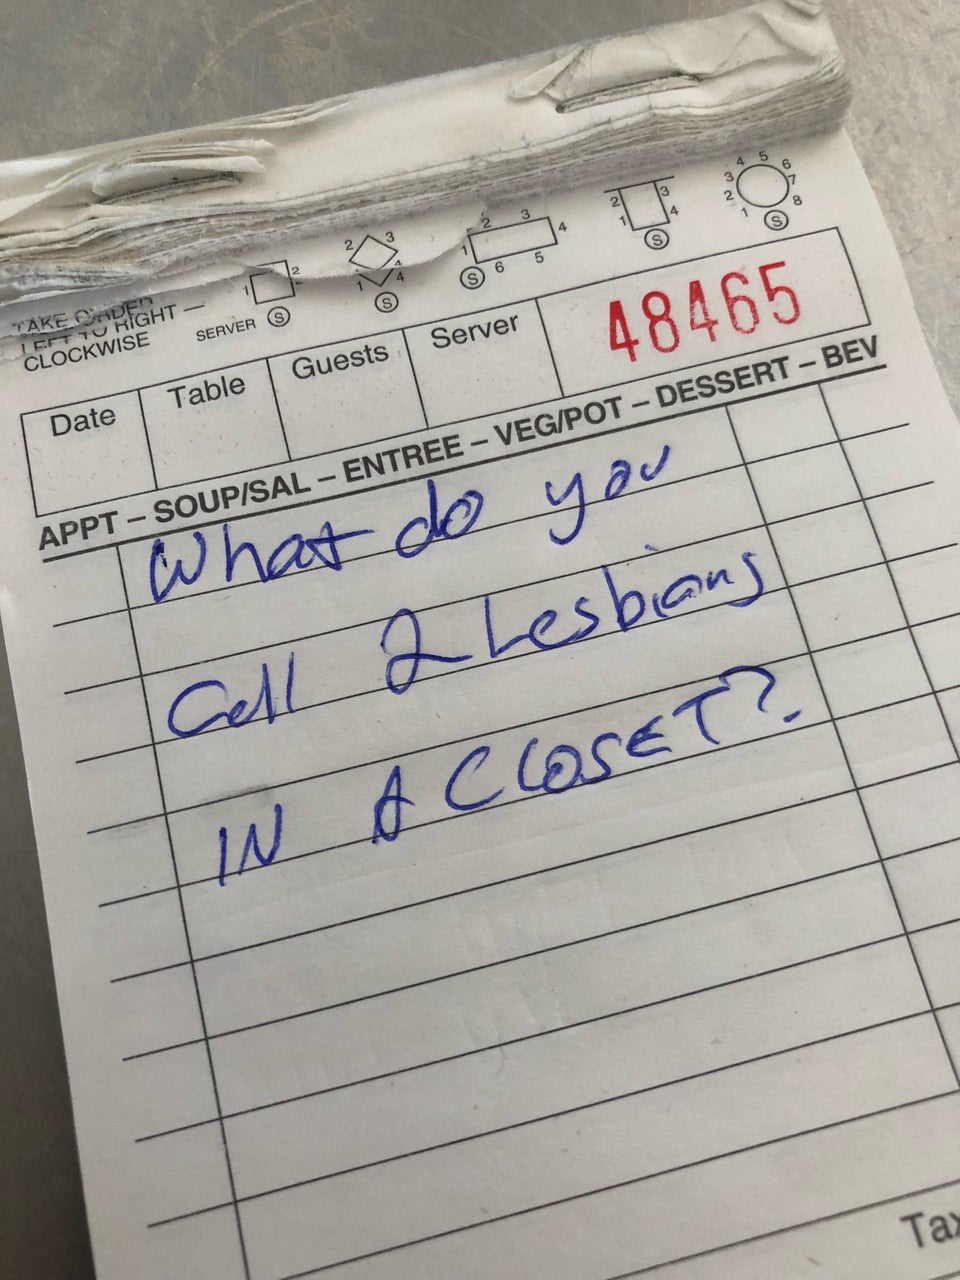 2 3 4 5 6 7 8 1 S
2 3 1 4 S
1 2 3 4 5 6 S
2 3 1 4 S
1 2 S
TAKE ORDER
LEFT TO RIGHT –
CLOCKWISE
SERVER
Date Table Guests Server 48465
APPT – SOUP/SAL – ENTREE – VEG/POT – DESSERT – BEV
What do you
Call 2 Lesbians
IN A CLOSET?
Tax